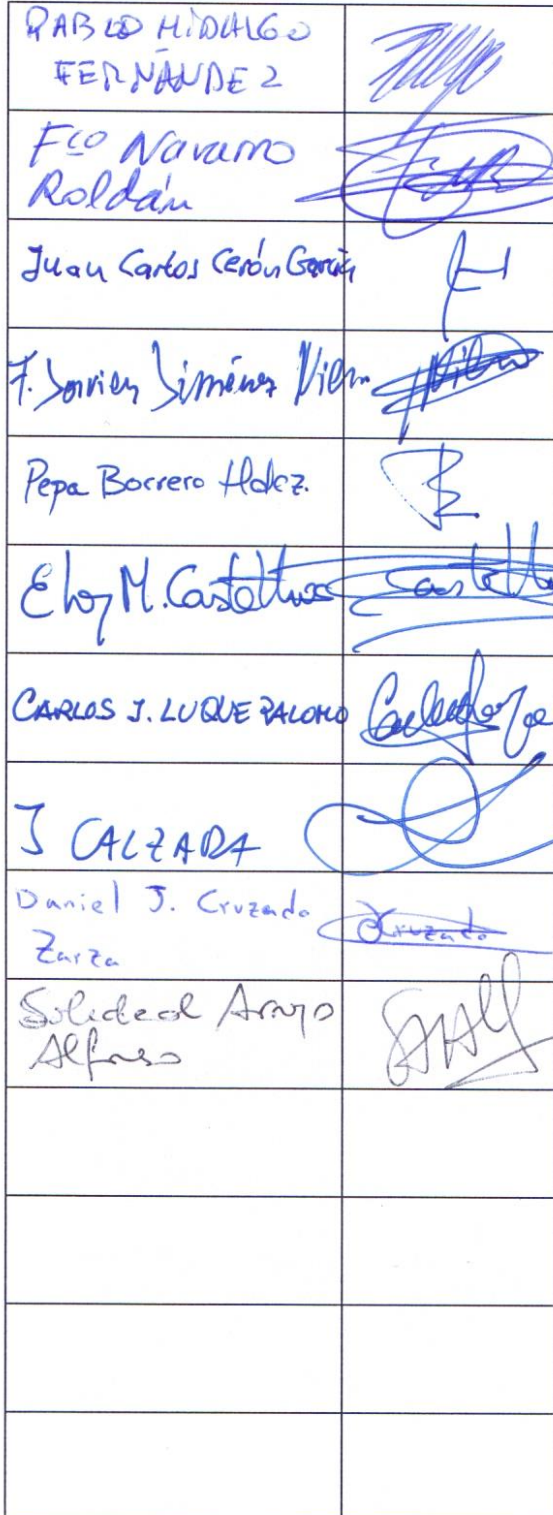 PABLO HIDALGO
FERNÁNDEZ
Fco Navarro
Roldán
Juan Carlos Cerón García
F. Javier Jiménez Vílem
Pepa Borrero Hdez.
Eloy M. Castellano Castello
CARLOS J. LUQUE PALOMO
J CALZADA
Daniel J. Cruzado Cruzado
Zarza
Soledad Arroyo
Alfonso